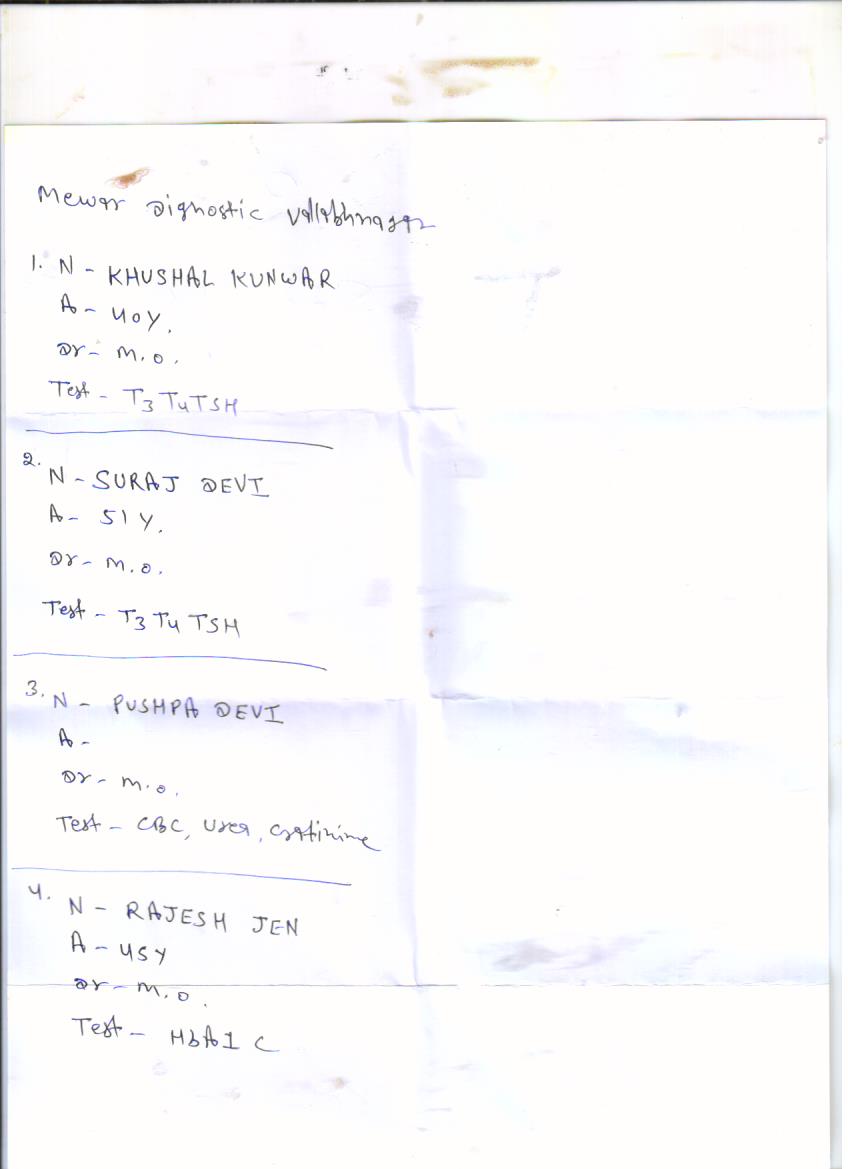 Mewar Dignostic Vallabhnagar
1. N - KHUSHAL KUNWAR
A - 40Y.
Dr - M.O.
Test - T3 T4 TSH
2. N - SURAJ DEVI
A - 51Y.
Dr - M.O.
Test - T3 T4 TSH
3. N - PUSHPA DEVI
A -
Dr - M.O.
Test - CBC, Urea, Cratinine
4. N - RAJESH JEN
A - 45Y
Dr - M.O.
Test - HbA1C